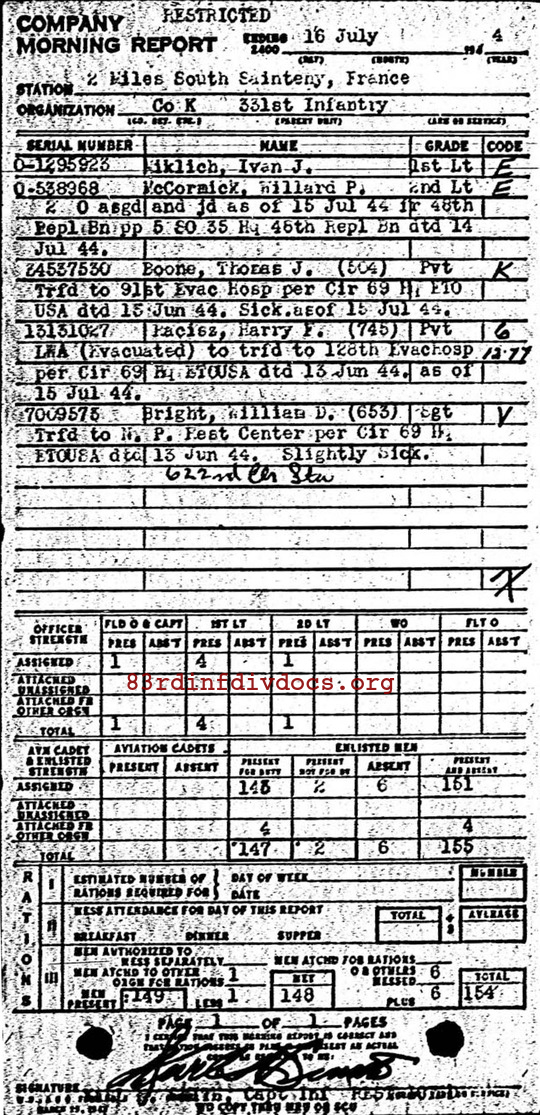 RESTRICTED
COMPANY
MORNING REPORT ENDING 2400 16 July 194 4
(DAY) (MONTH) (YEAR)
STATION 2 Miles South Sainteny, France
ORGANIZATION Co K 331st Infantry
(CO. DET. ETC.) (PARENT UNIT) (ARM OR SERVICE)
SERIAL NUMBER NAME GRADE CODE
O-1295923 Ivan J. 1st Lt E
O-538968 McCormick, Willard P. 2nd Lt E
2 O asgd and jd as of 15 Jul 44 fr 48th
Repl Bn pp 5 SO 35 Hq 48th Repl Bn dtd 14
Jul 44.
34537530 Boone, Thomas J. (504) Pvt K
Trfd to 91st Evac Hosp per Cir 69 Hq ETO
USA dtd 13 Jun 44. Sick.asof 15 Jul 44.
13131027 Harry F. (745) Pvt 6
LWA (Evacuated) to trfd to 128th Evachosp
per Cir 69 Hq ETOUSA dtd 13 Jun 44. as of
15 Jul 44.
7009575 Bright, William D. (653) Sgt V
Trfd to N. P. Rest Center per Cir 69 H.
ETOUSA dtd 13 Jun 44. Slightly Sick.
622nd Clr Sta
X
OFFICER STRENGTH FLD O & CAPT 1ST LT 2D LT WO FLT O
PRES ABS'T PRES ABS'T PRES ABS'T PRES ABS'T PRES ABS'T
ASSIGNED 1 4 1
ATTACHED UNASSIGNED
83rdinfdivdocs.org
ATTACHED FR OTHER ORGN
TOTAL 1 4 1
AVN CADET & ENLISTED STRENGTH AVIATION CADETS ENLISTED MEN
PRESENT ABSENT PRESENT FOR DUTY PRESENT NOT FOR DY ABSENT PRESENT AND ABSENT
ASSIGNED 143 2 6 151
ATTACHED UNASSIGNED
ATTACHED FR OTHER ORGN 4 4
TOTAL 147 2 6 155
RATIONS
I ESTIMATED NUMBER OF RATIONS REQUIRED FOR DAY OF WEEK DATE NUMBER
II MESS ATTENDANCE FOR DAY OF THIS REPORT TOTAL ÷3 AVERAGE
BREAKFAST DINNER SUPPER
III MEN AUTHORIZED TO MESS SEPARATELY MEN ATCHD FOR RATIONS
MEN ATCHD TO OTHER ORGN FOR RATIONS 1 NET O & OTHERS MESSED 6 TOTAL
MEN PRESENT 149 LESS 1 148 PLUS 6 154
PAGE 1 OF 1 PAGES
I CERTIFY THAT THIS MORNING REPORT IS CORRECT AND
SIGNATURE Capt Inf